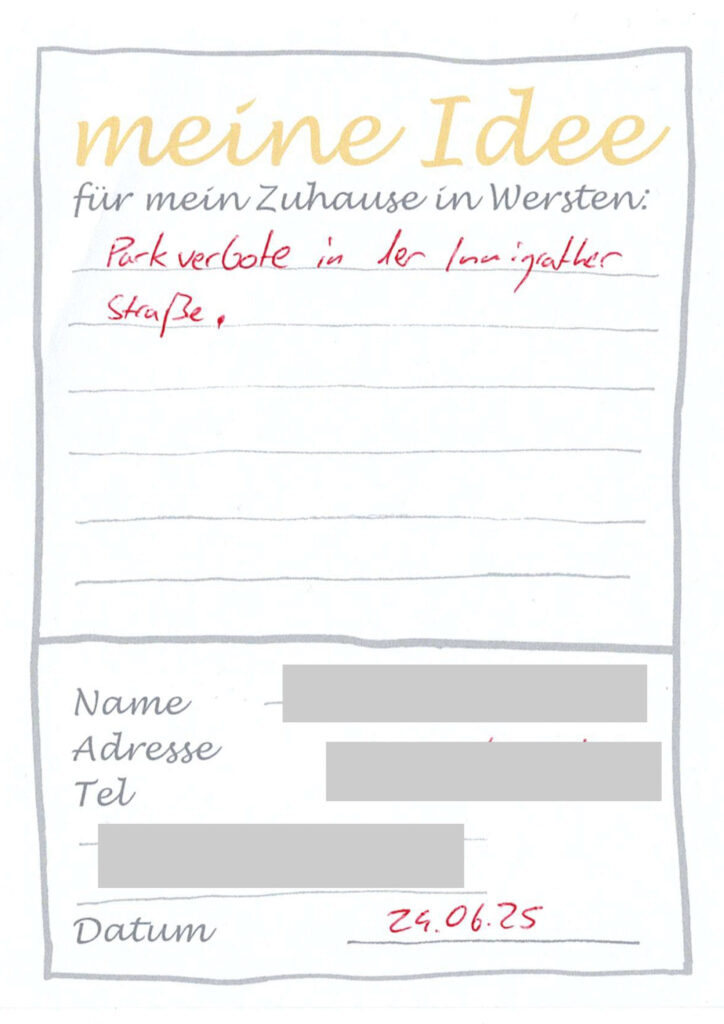 meine Idee
für mein Zuhause in Wersten:
Parkverbote in der Immigrather
Straße.
Name
Adresse
Tel
Datum 24.06.25